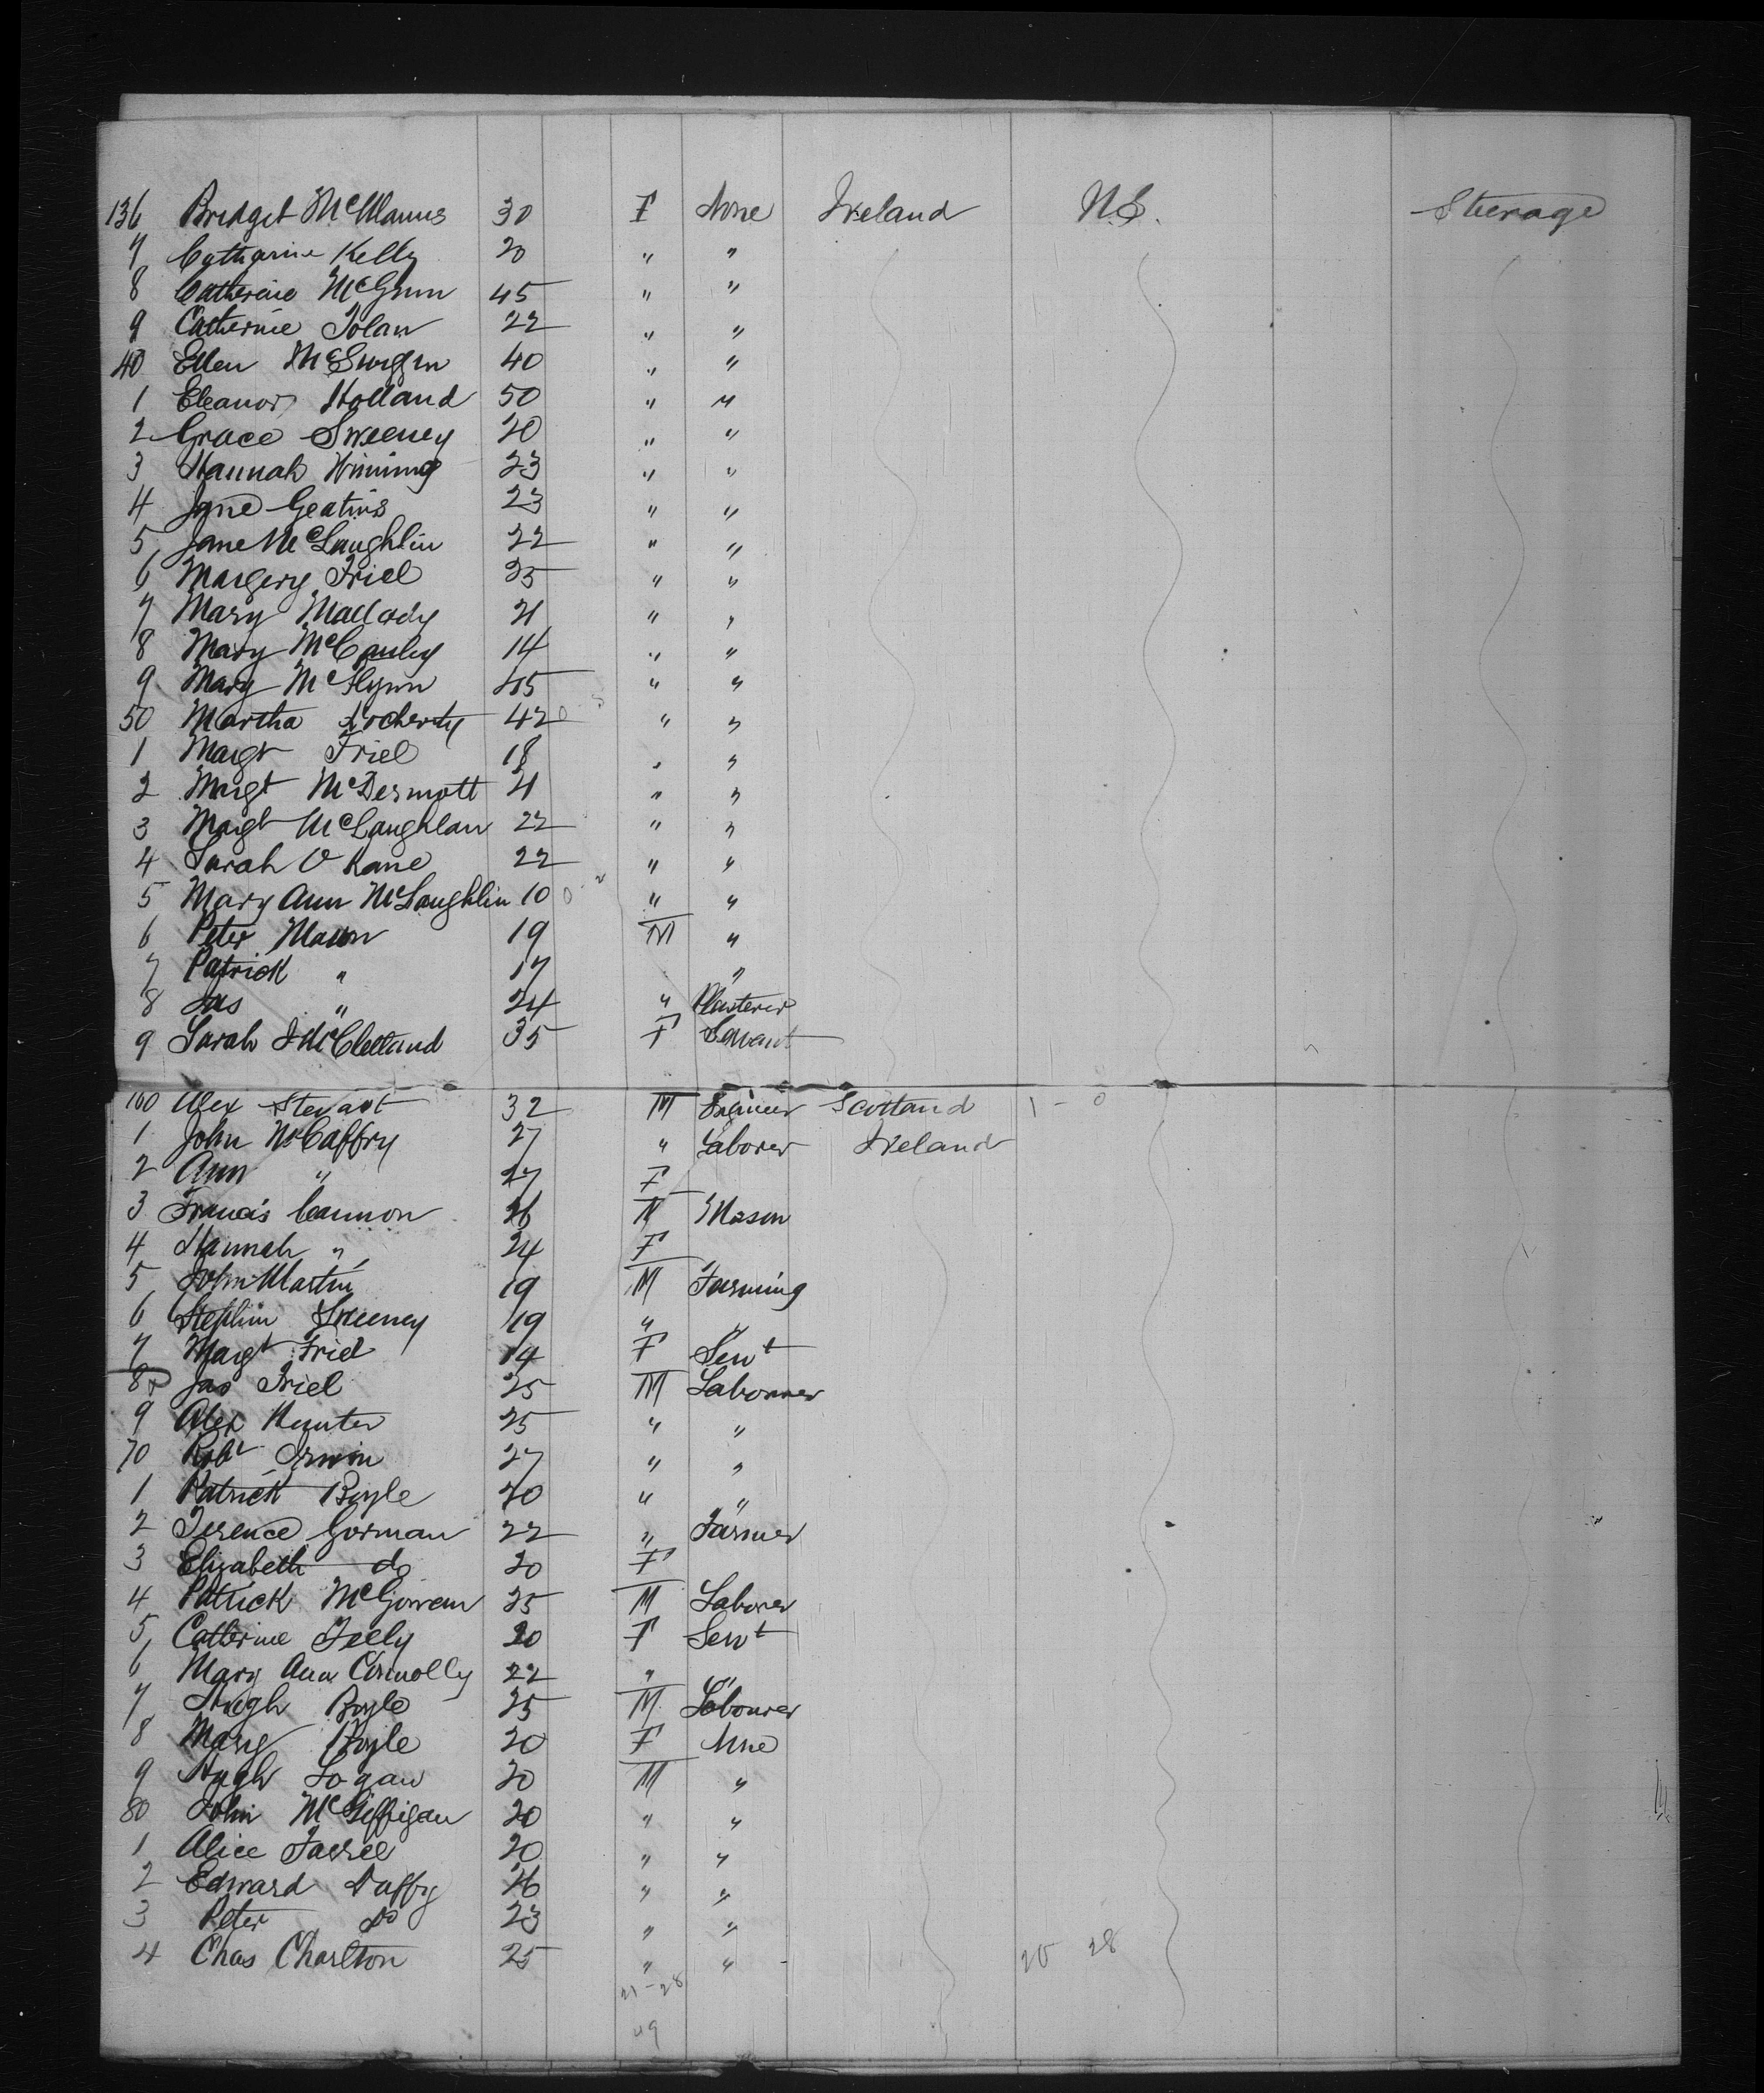 136 Bridget McManus 30 F None Ireland U.S. Steerage
7 Catharine Kelly 20 " "
8 Catherine McGinn 45 " "
9 Catherine Tolan 22 " "
40 Ellen 40 " "
1 Eleanor Holland 50 " "
2 Grace Sweeney 20 " "
3 Hannah Winning 23 " "
4 Jane Geatins 23 " "
5 Jane McLaughlin 22 " "
6 Margery Friel 25 " "
7 Mary 21 " "
8 Mary McCauley 14 " "
9 Mary McFlynn 45 " "
50 Martha Docherty 42 " "
1 Margt Friel 18 " "
2 Margt McDermott 21 " "
3 Margt McLaughlan 22 " "
4 Sarah O Kane 22 " "
5 Mary Ann McLaughlin 10 " "
6 Peter 19 M "
7 Patrick " 17 "
8 Jas " 24 " Plasterer
9 Sarah J McClelland 35 F Servant
160 Alex Stewart 32 M Engineer Scotland 1 - 0
1 John McCaffry 27 " Laborer Ireland
2 Ann " 27 F
3 Francis Cannon 26 M Mason
4 Hannah " 24 F
5 John Martin 19 M Farming
6 Stephen Sweeney 19 " "
7 Margt Friel 14 F Servt
8 Jas Friel 25 M Labourer
9 Alex Hunter 25 " "
70 Robt Irwin 27 " "
1 Patrick Boyle 20 " "
2 Terence Gorman 22 " Farmer
3 Elizabeth do 20 F
4 Patrick McGowan 25 M Laborer
5 Catherine Feely 20 F Servt
6 Mary Ann Connolly 22 " "
7 Hugh Boyle 25 M Labourer
8 Mary Boyle 20 F None
9 Hugh Logan 20 M "
80 John McGiffigan 20 " "
1 Alice Farrel 20 " "
2 Edward Duffy 26 " "
3 Peter do 23 " "
4 Chas Charlton 25 " " 20 28
21-28
49